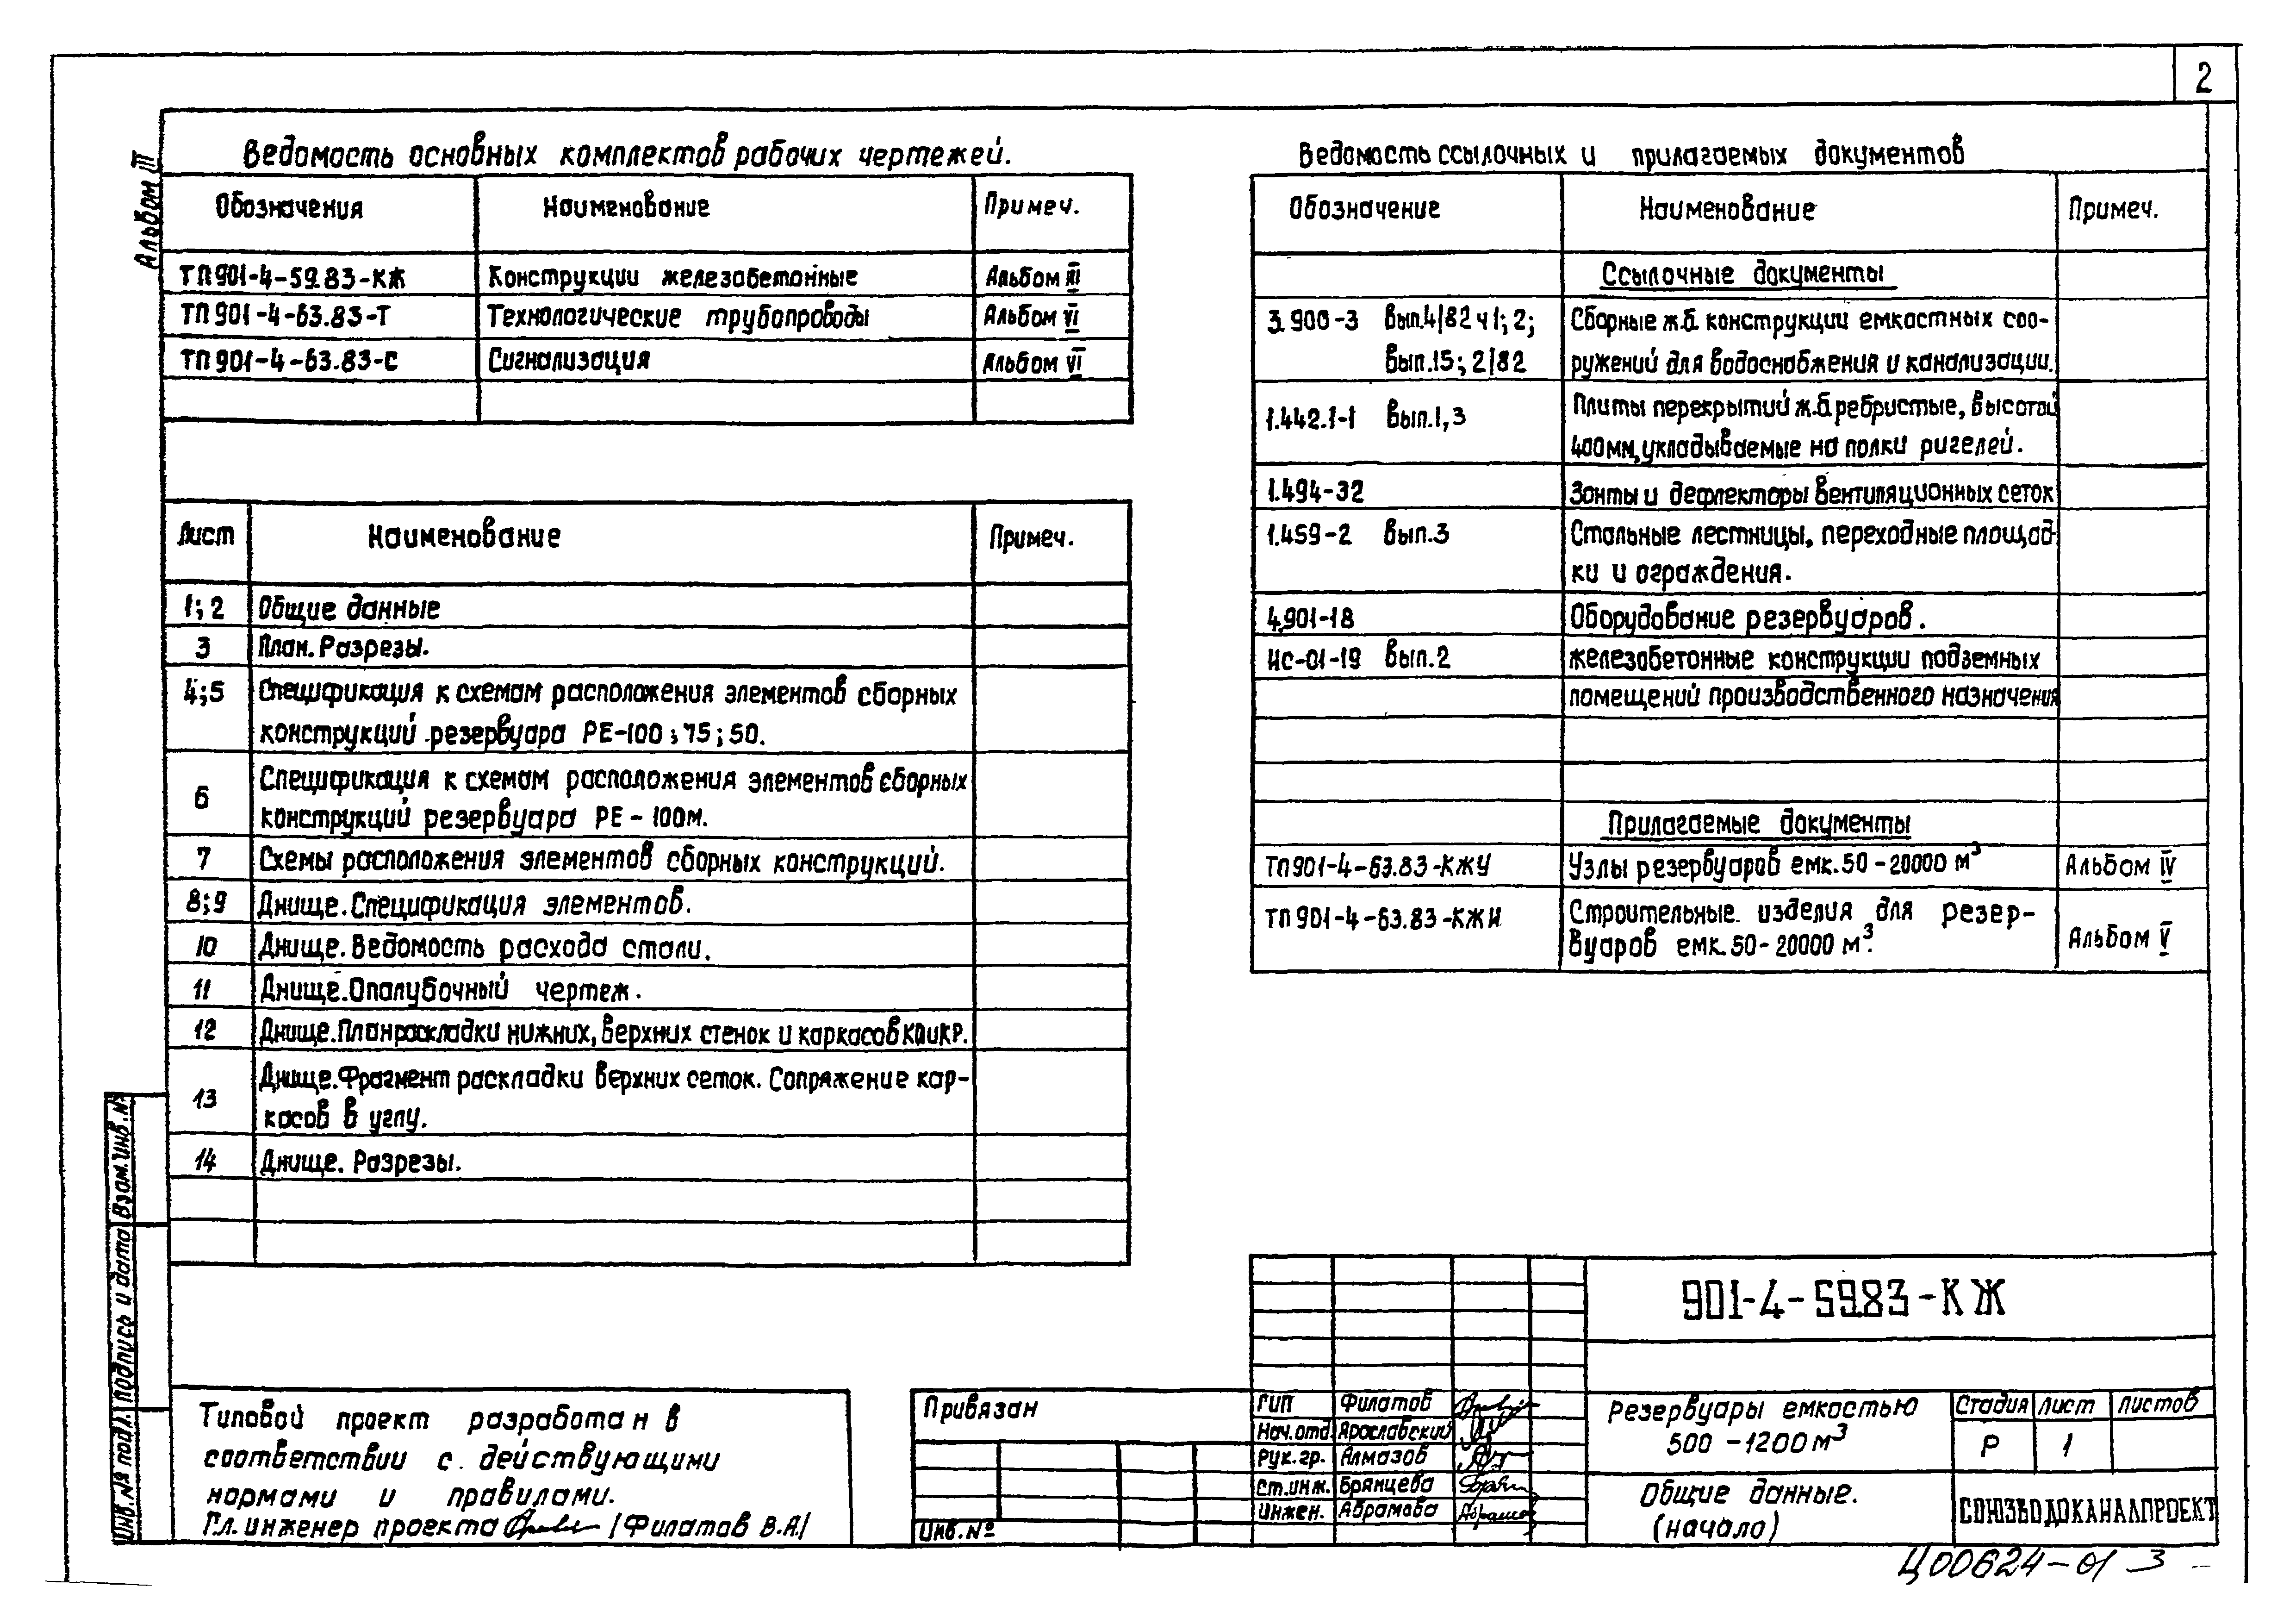 2
Альбом III
Ведомость основных комплектов рабочих чертежей.
Обозначения Наименование Примеч.
ТП901-4-59.83-КЖ Конструкции железобетонные Альбом III
ТП901-4-63.83-Т Технологические трубопроводы Альбом VI
ТП901-4-63.83-С Сигнализация Альбом VI
Лист Наименование Примеч.
1; 2 Общие данные
3 План. Разрезы.
4;5 Спецификация к схемам расположения элементов сборных
конструкций резервуара РЕ-100; 75; 50.
6 Спецификация к схемам расположения элементов сборных
конструкций резервуара РЕ-100м.
7 Схемы расположения элементов сборных конструкций.
8;9 Днище. Спецификация элементов.
10 Днище. Ведомость расхода стали.
11 Днище. Опалубочный чертеж.
12 Днище. План раскладки нижних, верхних стенок и каркасов КП и КР.
13 Днище. Фрагмент раскладки верхних сеток. Сопряжение кар-
касов в углу.
14 Днище. Разрезы.
Ведомость ссылочных и прилагаемых документов
Обозначение Наименование Примеч.
Ссылочные документы
3.900-3 Вып.4/82 ч1; 2; Сборные ж.б. конструкции емкостных соо-
Вып.15; 2/82 ружений для водоснабжения и канализации.
1.442.1-1 Вып.1,3 Плиты перекрытий ж.б. ребристые, высотой
400мм, укладываемые на полки ригелей.
1.494-32 Зонты и дефлекторы вентиляционных сеток
1.459-2 Вып.3 Стальные лестницы, переходные площад-
ки и ограждения.
4.901-18 Оборудование резервуаров.
ИС-01-19 Вып.2 железобетонные конструкции подземных
помещений производственного назначения
Прилагаемые документы
ТП901-4-63.83-КЖУ Узлы резервуаров емк. 50-20000 м³ Альбом IV
ТП901-4-63.83-КЖИ Строительные изделия для резер-
вуаров емк. 50-20000 м³. Альбом V
Взам. инв. №
Подпись и дата
Инв. № подл.
Типовой проект разработан в
соответствии с действующими
нормами и правилами.
Гл. инженер проекта /Филатов В.А/
Привязан
Инв. №
ГИП Филатов
Нач. отд. Ярославский
Рук. гр. Алмазов
Ст. инж. Брянцева
Инжен. Абрамова
901-4-59.83-КЖ
Резервуары емкостью
500-1200 м³
Стадия Лист Листов
Р 1
Общие данные.
(начало)
СОЮЗВОДОКАНАЛПРОЕКТ
Ц00624-01 3